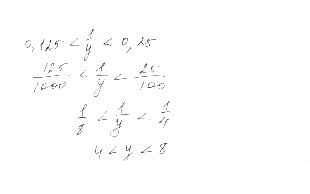 0,125 < 1/y < 0,25
125/1000 < 1/y < 25/100
1/8 < 1/y < 1/4
4 < y < 8